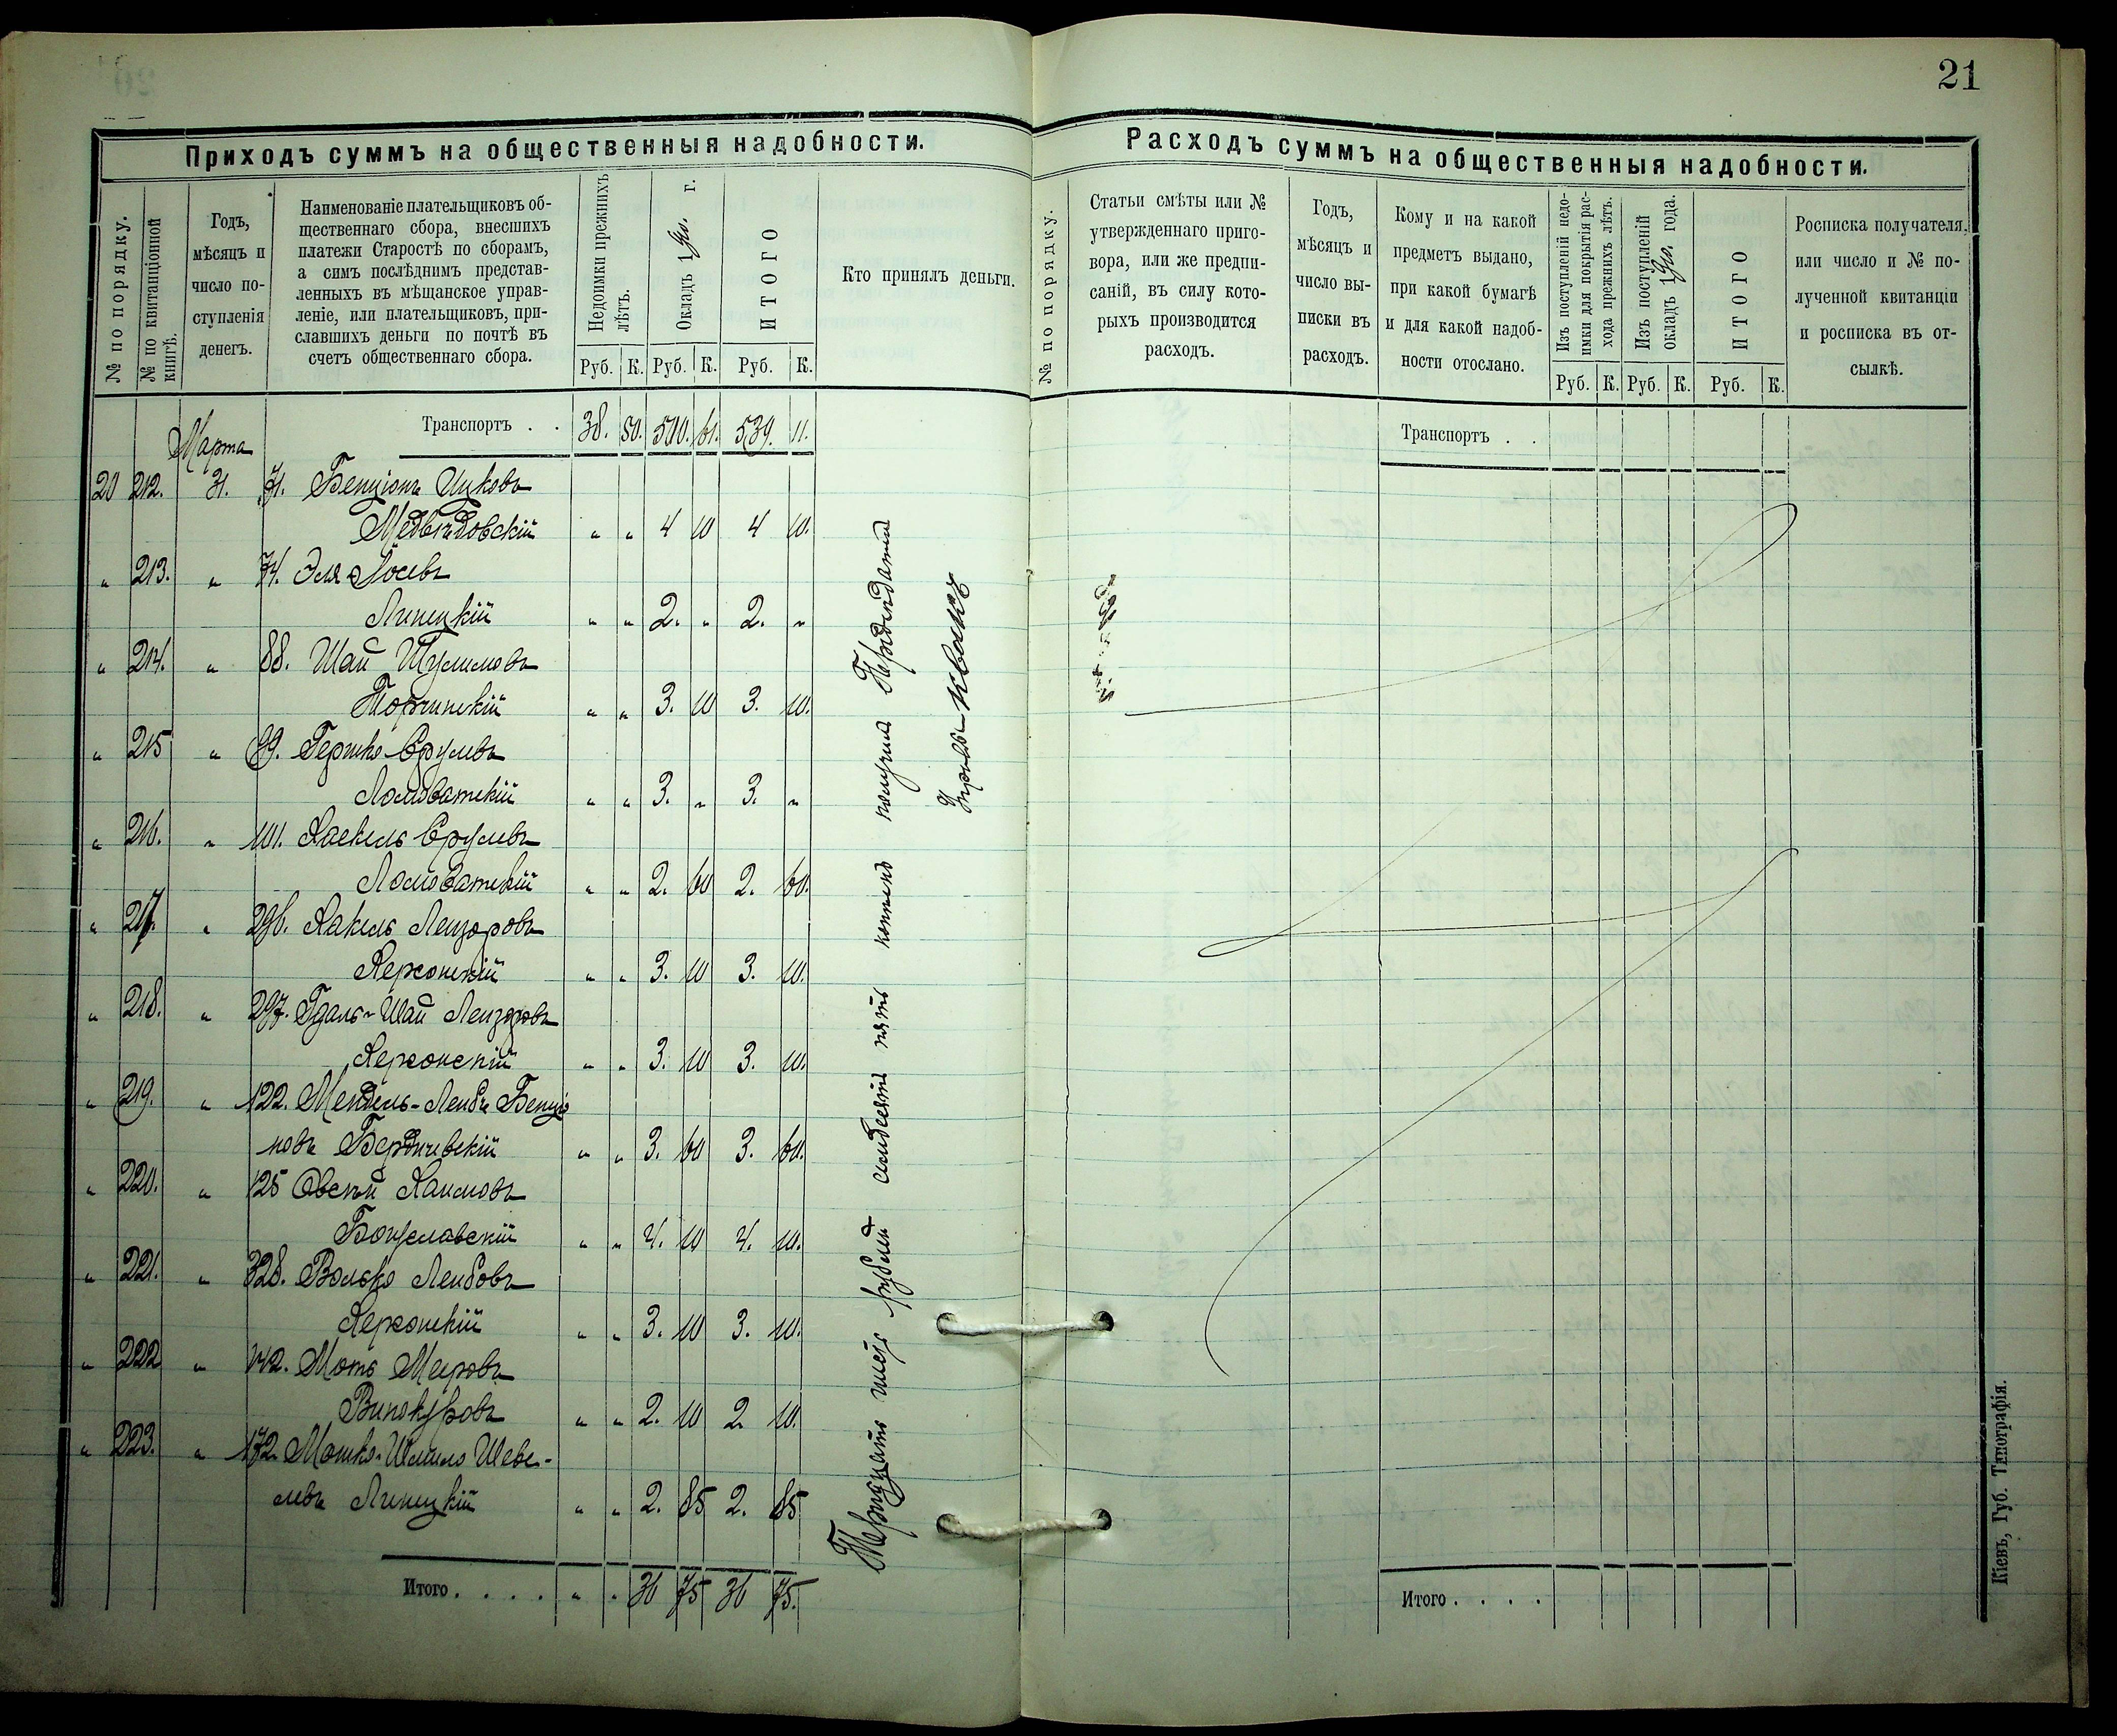 21
Приходъ суммъ на общественныя надобности.
№ по порядку.
№ по квитанціонной книгѣ.
Годъ,
мѣсяцъ и
число по-
ступленія
денегъ.
Наименованіе плательщиковъ об-
щественнаго сбора, внесшихъ
платежи Старостѣ по сборамъ,
а симъ послѣднимъ представ-
ленныхъ въ мѣщанское управ-
леніе, или плательщиковъ, при-
славшихъ деньги по почтѣ въ
счетъ общественнаго сбора.
Недоимки прежнихъ
лѣтъ.
Окладъ 1 г.
ИТОГО
Кто принялъ деньги.
Руб. К. Руб. К. Руб. К.
Транспортъ . . 38. 50. 500. 61. 539. 11.
Марта
20 212. 31. 71. Бенціонъ Ицковъ
Медвѣдовскій " " 4 10 4 10.
" 213. " 74. Эля Іосевъ
Липецкій " " 2. " 2. "
" 214. " 88. Шая Шулимовъ
" " 3. 10 3. 10.
" 215 " 89. Гершко Срулевъ
Ломоватскій " " 3. " 3. "
" 216. " 101. Хаскель Срулевъ
Ломоватскій " " 2. 60 2. 60.
" 217. " 296. Хакель Лейзоровъ
Херсонскій " " 3. 10 3. 10.
" 218. " 297. Гдаль-Шая Лейзоровъ
Херсонскій " " 3. 10 3. 10.
" 219. " 122. Мендель-Лейбъ Бенціо
новъ Бердичевскій " " 3. 60 3. 60.
" 220. " 125 Овсей Хаимовъ
Богуславскій " " 4. 10 4. 10.
" 221. " 328. Волько Лейбовъ
Херсонскій " " 3. 10 3. 10.
" 222 " 142. Мотъ Меировъ
Винокуровъ " " 2. 10 2 10.
" 223. " 172. Мошко-Шмилъ Шеве-
левъ Липецкій " " 2. 85 2. 85
Итого . . . . " " 36 75 36 75.
Тридцать шесть рублей семдесятъ пять копеекъ получилъ
Расходъ суммъ на общественныя надобности.
№ по порядку.
Статьи смѣты или №
утвержденнаго приго-
вора, или же предпи-
саній, въ силу кото-
рыхъ производится
расходъ.
Годъ,
мѣсяцъ и
число вы-
писки въ
расходъ.
Кому и на какой
предметъ выдано,
при какой бумагѣ
и для какой надоб-
ности отослано.
Изъ поступленій недо-
имки для покрытія рас-
хода прежнихъ лѣтъ.
Изъ поступленій
окладъ 1 года.
ИТОГО
Росписка получателя,
или число и № по-
лученной квитанціи
и росписка въ от-
сылкѣ.
Руб. К. Руб. К. Руб. К.
Транспортъ . .
Итого . . . .
Кіевъ, Губ. Типографія.